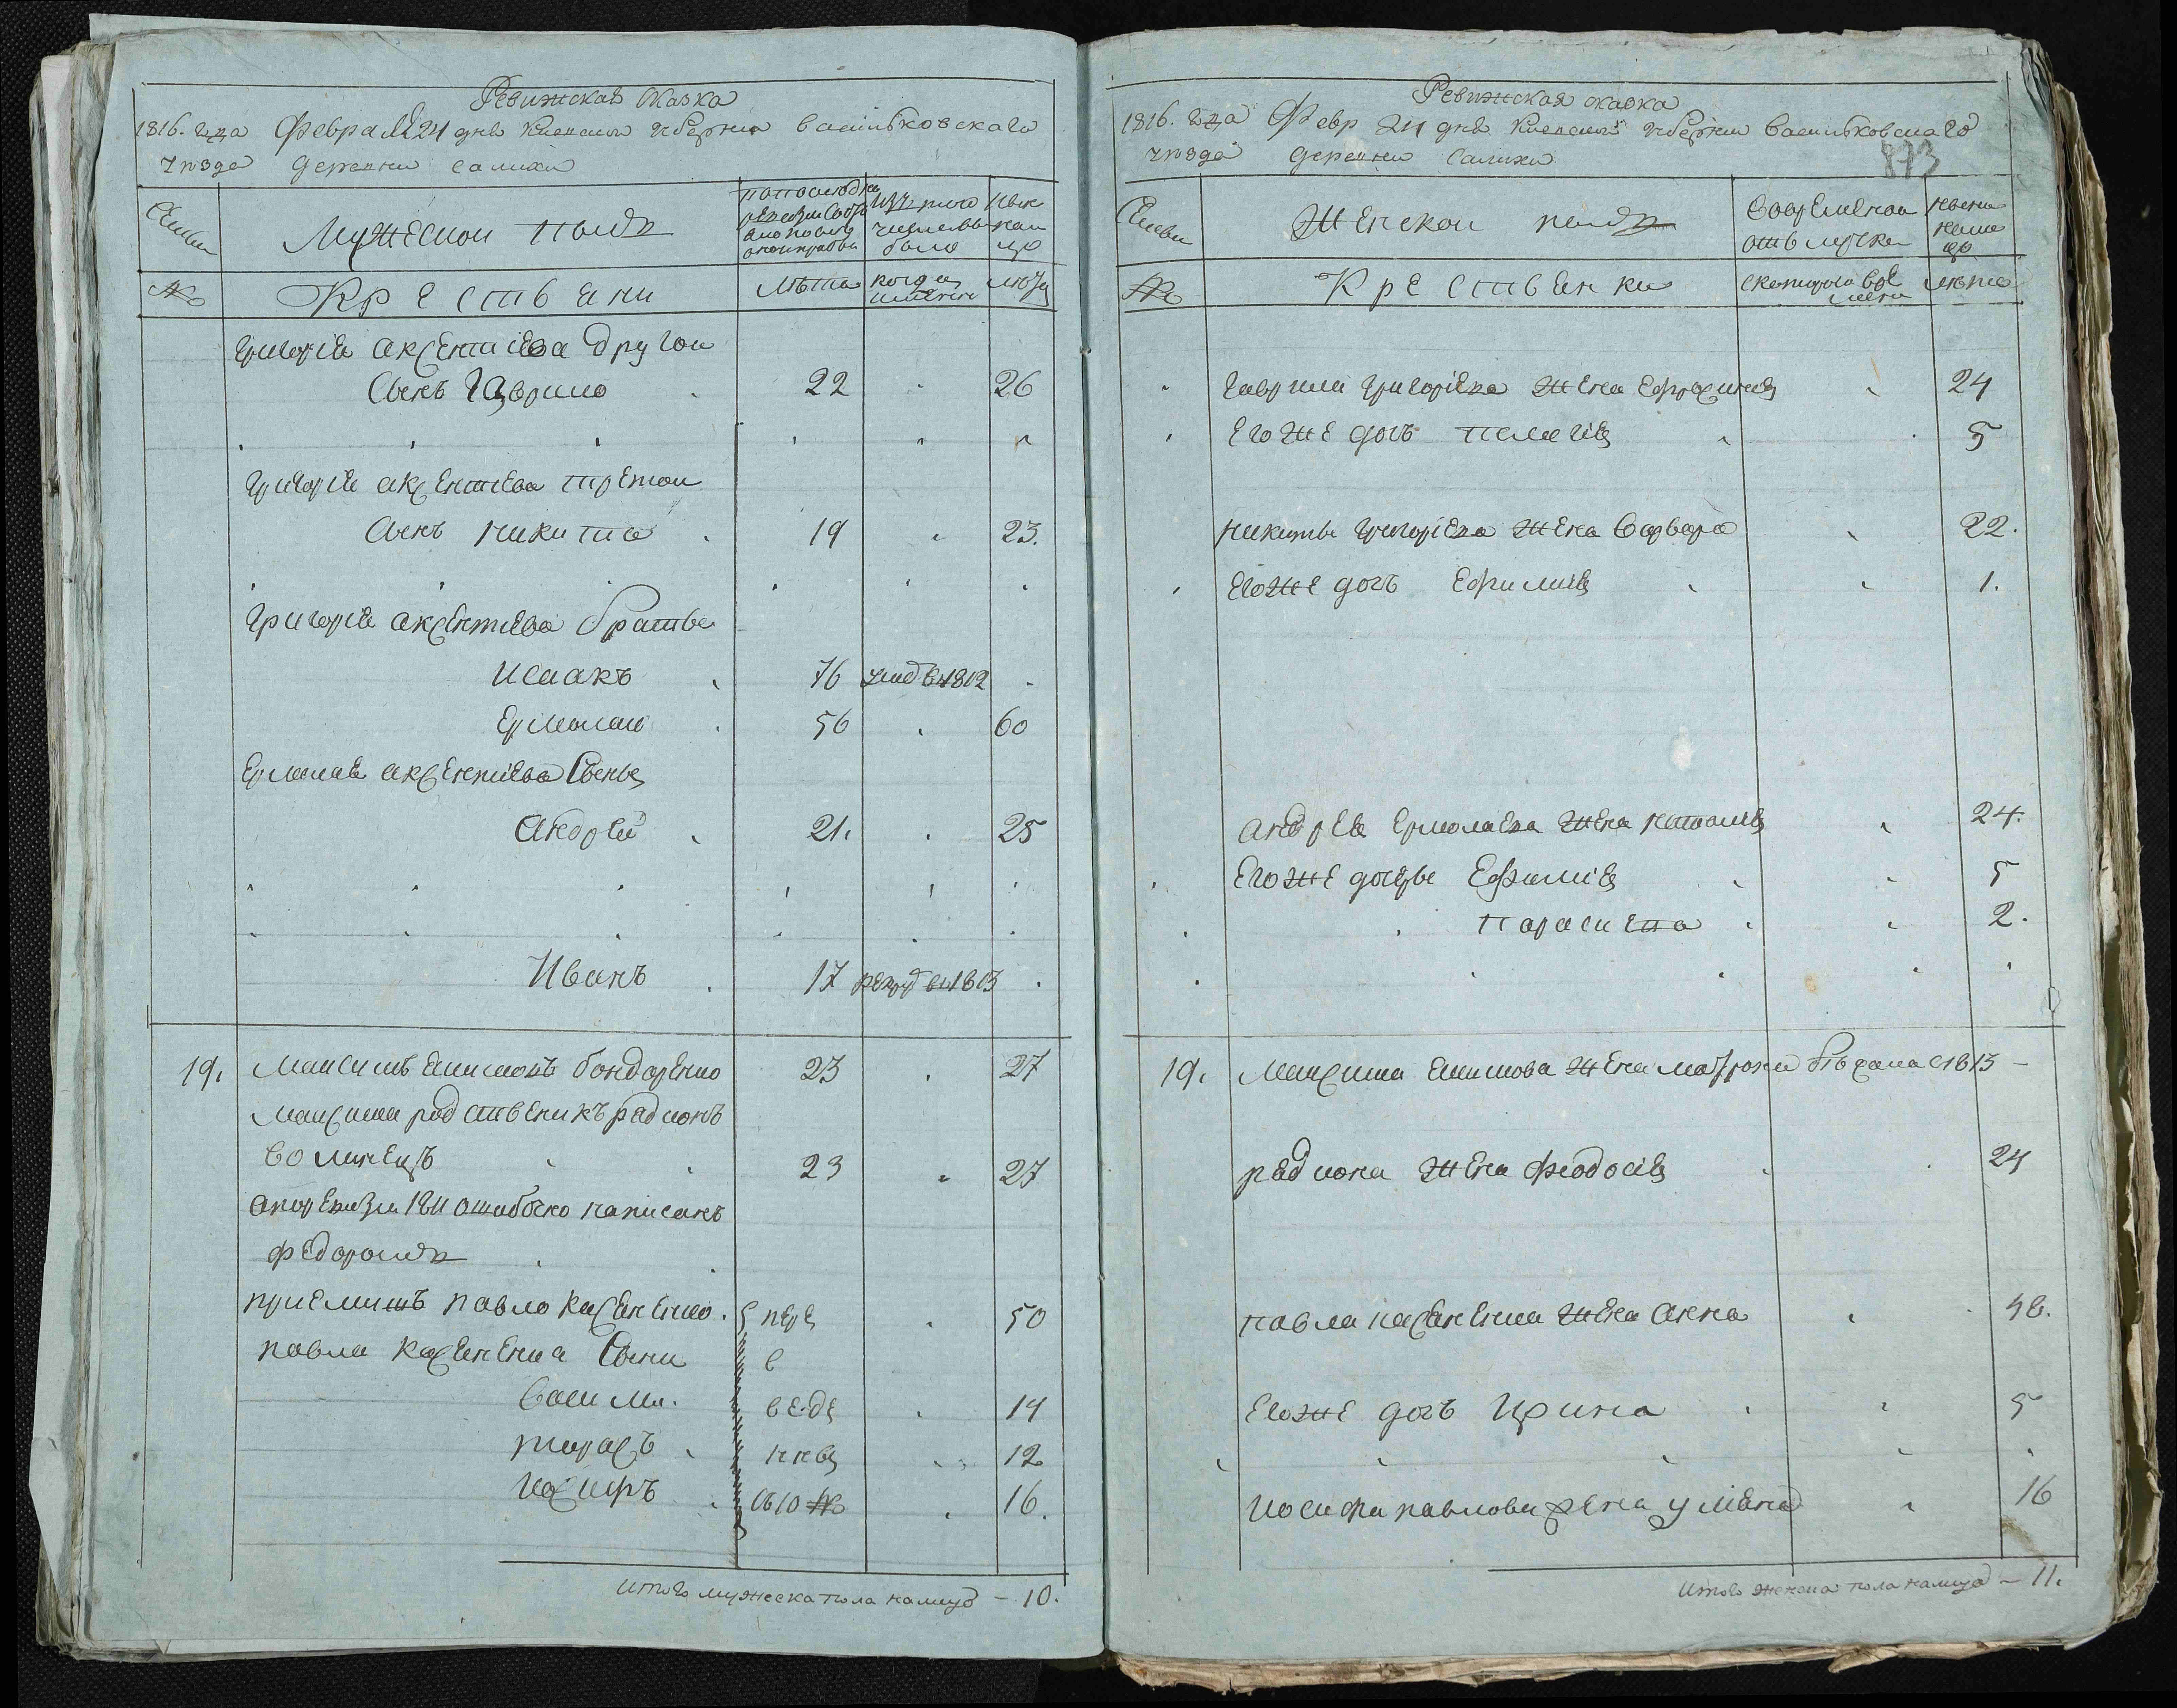 Ревижская сказка
1816. года Февраля 24 дня Киевской губернии васильковского
уезда деревни салихи
Семьи
Мужеской полъ
по последней ревизии состояло и после оной прибыло
изъ того числа выбыло
ныне на лицо
№
Крестьяни
лета
когда именно
лета
григорія аксентиева другои
Сынъ Гаврило 22 26
григорія аксентиева третои
Сынъ никита 19 23.
григорія аксентиева братья
Исаакъ 76 умре въ 1812
Ермолаи 56 60
Ермолая аксентіева Сыны
андрей 21. 25
Иванъ 17 рекрут въ 1813
19. Максимъ Бондаренко 23 27
Максима родственикъ радионъ
волинецъ 23 27
а по ревизіи 1811 ошибочно написанъ
федоромъ
приемишъ павло Касяненко. 50
павла Касяненка Сыни
василь. 14
тарасъ 12
иосифъ 16.
Итого мужеска пола налицо – 10.
Ревижская сказка
1816. года Февр 24 дня Киевской губернии васильковскаго
уезда деревни салихи
873
Семьи
Женской полъ
во временной отлучке
ныне на лицо
№
Крестьенки
с которого времени
лета
гаврила григоріева жена Ефросинія 24
Егоже дочь пелагія 5
никиты григоріева жена варвара 22.
Егоже дочь Ефимія 1.
андрея Ермолаева жена наталія 24.
Егоже дочеры Ефимія 5
параскева 2.
19. Максима жена матрона 1815 –
радиона жена феодосія 24
павла касяненка жена анна 48.
Егоже дочь Ирина 5
иосифа павлова жена улияна 16
Итого женска пола налицо – 11.